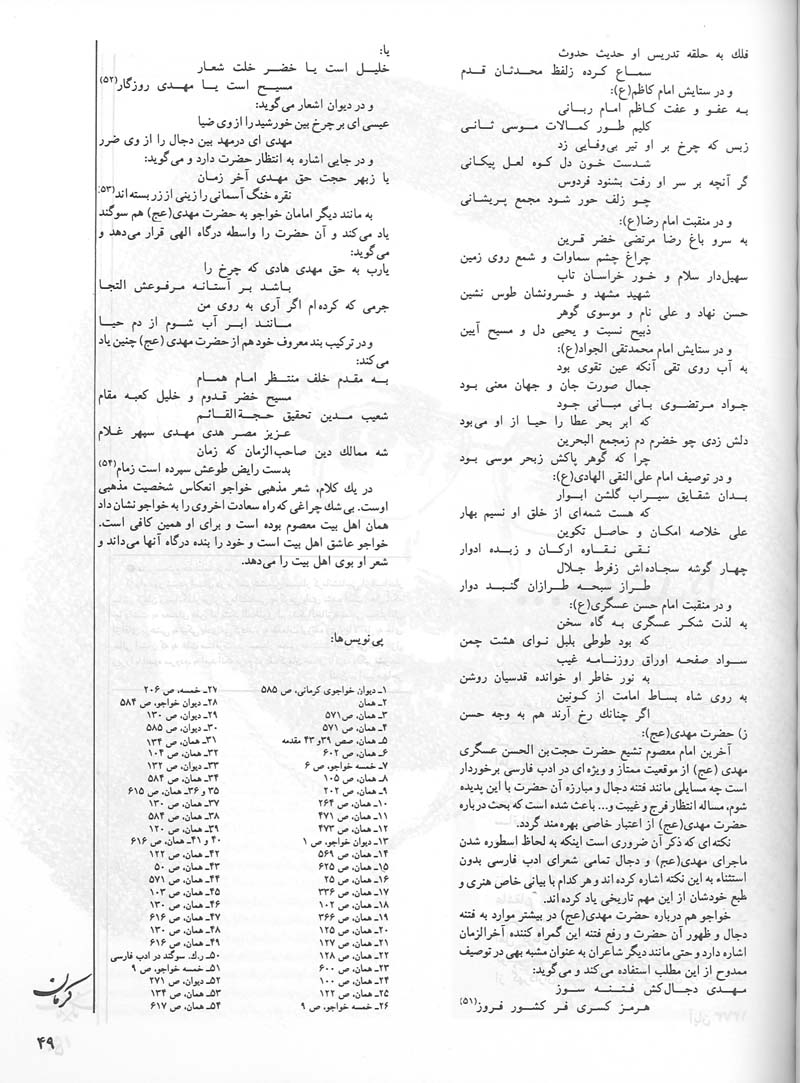 فلك به حلقه تدريس او حديث حدوث
سماع كرده زلفظ محدثان قدم
و در ستايش امام كاظم(ع):
به عفو و عفت كاظم امام ربانى
كليم طور كمالات موسى ثانى
زبس كه چرخ بر او تير بى‌وفايى زد
شدست خون دل كوه لعل پيكانى
گر آنچه بر سر او رفت بشنود فردوس
چو زلف حور شود مجمع پريشانى
و در منقبت امام رضا(ع):
به سرو باغ رضا مرتضى خضر قرين
چراغ چشم سماوات و شمع روى زمين
سهيل‌دار سلام و خور خراسان تاب
شهيد مشهد و خسرونشان طوس نشين
حسن نهاد و على نام و موسوى گوهر
ذبيح نسبت و يحيى دل و مسيح آيين
و در ستايش امام محمدتقى الجواد(ع):
به آب روى تقى آنكه عين تقوى بود
جمال صورت جان و جهان معنى بود
جواد مرتضوى بانى مبانى جود
كه ابر بحر عطا را حيا از او مى‌بود
دلش زدى چو خضرم دم زمجمع البحرين
چرا كه گوهر پاكش زبحر موسى بود
و در توصيف امام على‌النقى الهادى(ع):
بدان شقايق سيراب گلشن ابوار
كه هست شمه‌اى از خلق او نسيم بهار
على خلاصه امكان و حاصل تكوين
نقى نقاوه اركان و زبده ادوار
چهار گوشه سجاده‌اش زفرط جلال
طراز سبحه طرازان گنبد دوار
و در منقبت امام حسن عسگرى(ع):
به لذت شكر عسگرى به گاه سخن
كه بود طوطى بلبل نواى هشت چمن
سواد صفحه اوراق روزنامه غيب
به نور خاطر او خوانده قدسيان روشن
به روى شاه بساط امامت از كونين
اگر چنانك رخ آرند هم به وجه حسن
ز) حضرت مهدى(عج):
آخرين امام معصوم تشيع حضرت حجت‌بن الحسن عسگرى
مهدى (عج) از موقعيت ممتاز و ويژه‌اى در ادب فارسى برخوردار
است چه مسايلى مانند فتنه دجال و مبارزه آن حضرت با اين پديده
شوم، مساله انتظار فرج و غيبت و... باعث شده است كه بحث درباره
حضرت مهدى(عج) از اعتبار خاصى بهره‌مند گردد.
نكته‌اى كه ذكر آن ضرورى است اينكه به لحاظ اسطوره شدن
ماجراى مهدى(عج) و دجال تمامى شعراى ادب فارسى بدون
استثناء به اين نكته اشاره كرده‌اند و هر كدام با بيانى خاص هنرى و
طبع خودشان از اين مهم تاريخى ياد كرده‌اند.
خواجو هم درباره حضرت مهدى(عج) در بيشتر موارد به فتنه
دجال و ظهور آن حضرت و رفع فتنه اين گمراه كننده آخرالزمان
اشاره دارد و حتى مانند ديگر شاعران به عنوان مشبه بهى در توصيف
ممدوح از اين مطلب استفاده مى‌كند و مى‌گويد:
مهدى دجال‌كش فتنه سوز
هرمز كسرى فر كشور فروز(۵۱)
يا:
خليل است يا خضر خلت شعار
مسيح است يا مهدى روزگار(۵۲)
و در ديوان اشعار مى‌گويد:
عيسى‌اى بر چرخ بين خورشيد را از وى ضيا
مهدى‌اى درمهد بين دجال را از وى ضرر
و در جايى اشاره به انتظار حضرت دارد و مى‌گويد:
يا زبهر حجت حق مهدى آخر زمان
نقره خنگ آسمانى را زينى از زر بسته‌اند(۵۳)
به مانند ديگر امامان خواجو به حضرت مهدى(عج) هم سوگند
ياد مى‌كند و آن حضرت را واسطه درگاه الهى قرار مى‌دهد و
مى‌گويد:
يارب به حق مهدى هادى كه چرخ را
باشد بر آستانه مرفوعش التجا
جرمى كه كرده‌ام اگر آرى به روى من
مانند ابر آب شوم از دم حيا
و در تركيب بند معروف خود هم از حضرت مهدى (عج) چنين ياد
مى‌كند:
به مقدم خلف منتظر امام همام
مسيح خضر قدوم و خليل كعبه مقام
شعيب مدين تحقيق حجةالقائم
عزيز مصر هدى مهدى سپهر غلام
شه ممالك دين صاحب‌الزمان كه زمان
بدست رايض طوعش سپرده است زمام(۵۴)
در يك كلام، شعر مذهبى خواجو انعكاس شخصيت مذهبى
اوست. بى‌شك چراغى كه راه سعادت اخروى را به خواجو نشان داد
همان اهل بيت معصوم بوده است و براى او همين كافى است.
خواجو عاشق اهل بيت است و خود را بنده درگاه آنها مى‌داند و
شعر او بوى اهل بيت را مى‌دهد.
پى‌نويس‌ها:
۱ـ ديوان خواجوى كرمانى، ص ۵۸۵
۲ـ همان
۳ـ همان، ص ۵۷۱
۴ـ همان، ص ۵۷۱
۵ـ همان، صص ۳۹ و ۴۳ مقدمه
۶ـ همان، ص ۶۰۲
۷ـ خمسه خواجو، ص ۶
۸ـ همان، ص ۱۰۵
۹ـ همان، ص ۲۰۲
۱۰ـ همان، ص ۲۶۴
۱۱ـ همان، ص ۴۷۱
۱۲ـ همان، ص ۴۷۳
۱۳ـ ديوان خواجو، ص ۱
۱۴ـ همان، ص ۵۶۹
۱۵ـ همان، ص ۶۲۵
۱۶ـ همان، ص ۲۵
۱۷ـ همان، ص ۳۳۶
۱۸ـ همان، ص ۱۰۲
۱۹ـ همان، ص ۳۶۶
۲۰ـ همان، ص ۱۲۵
۲۱ـ همان، ص ۱۲۷
۲۲ـ همان، ص ۱۲۸
۲۳ـ همان، ص ۶۰۰
۲۴ـ همان، ص ۱۰۰
۲۵ـ همان، ص ۱۲۲
۲۶ـ خمسه خواجو، ص ۹
۲۷ـ خمسه، ص ۲۰۶
۲۸ـ ديوان خواجو، ص ۵۸۴
۲۹ـ ديوان، ص ۱۳۰
۳۰ـ ديوان، ص ۵۸۵
۳۱ـ همان، ص ۱۳۴
۳۲ـ همان، ص ۱۰۴
۳۳ـ ديوان، ص ۱۳۲
۳۴ـ همان، ص ۵۸۴
۳۵ و ۳۶ـ همان، ص ۶۱۵
۳۷ـ همان، ص ۱۳۰
۳۸ـ همان، ص ۵۸۴
۳۹ـ همان، ص ۱۲۰
۴۰ و ۴۱ـ همان، ص ۶۱۶
۴۲ـ همان، ص ۱۲۲
۴۳ـ همان، ص ۵۰
۴۴ـ همان، ص ۵۷۱
۴۵ـ همان، ص ۱۰۳
۴۶ـ همان، ص ۱۳۰
۴۷ـ همان، ص ۶۱۶
۴۸ـ همان، ص ۱۳۰
۴۹ـ همان، ص ۶۱۶
۵۰ـ ر.ك. سوگند در ادب فارسى
۵۱ـ خمسه خواجو، ص ۹
۵۲ـ ديوان، ص ۲۷۱
۵۳ـ همان، ص ۱۳۴
۵۴ـ همان، ص ۶۱۷
كرمان
۴۹